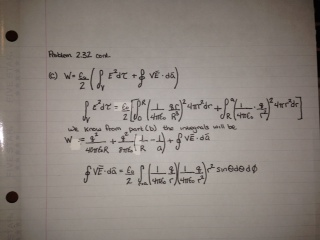 Problem 2.32 cont.
(c) W = ε₀/2 ( ∫_V E² dτ + ∮ V E⃗ · da⃗ )
∫_V E² dτ = ε₀/2 [ ∫₀^R ( 1/4πε₀ qr/R³ )² 4πr² dr + ∫_R^a ( 1/4πε₀ · q/r² )² 4πr² dr ]
We know from part (b) the integrals will be
W = q²/40πε₀R + q²/8πε₀ ( 1/R − 1/a ) + ∮ V E⃗ · da⃗
∮ V E⃗ · da⃗ = ε₀/2 ∫_{r=a} ( 1/4πε₀ q/r ) ( 1/4πε₀ q/r² ) r² sinθ dθ dφ